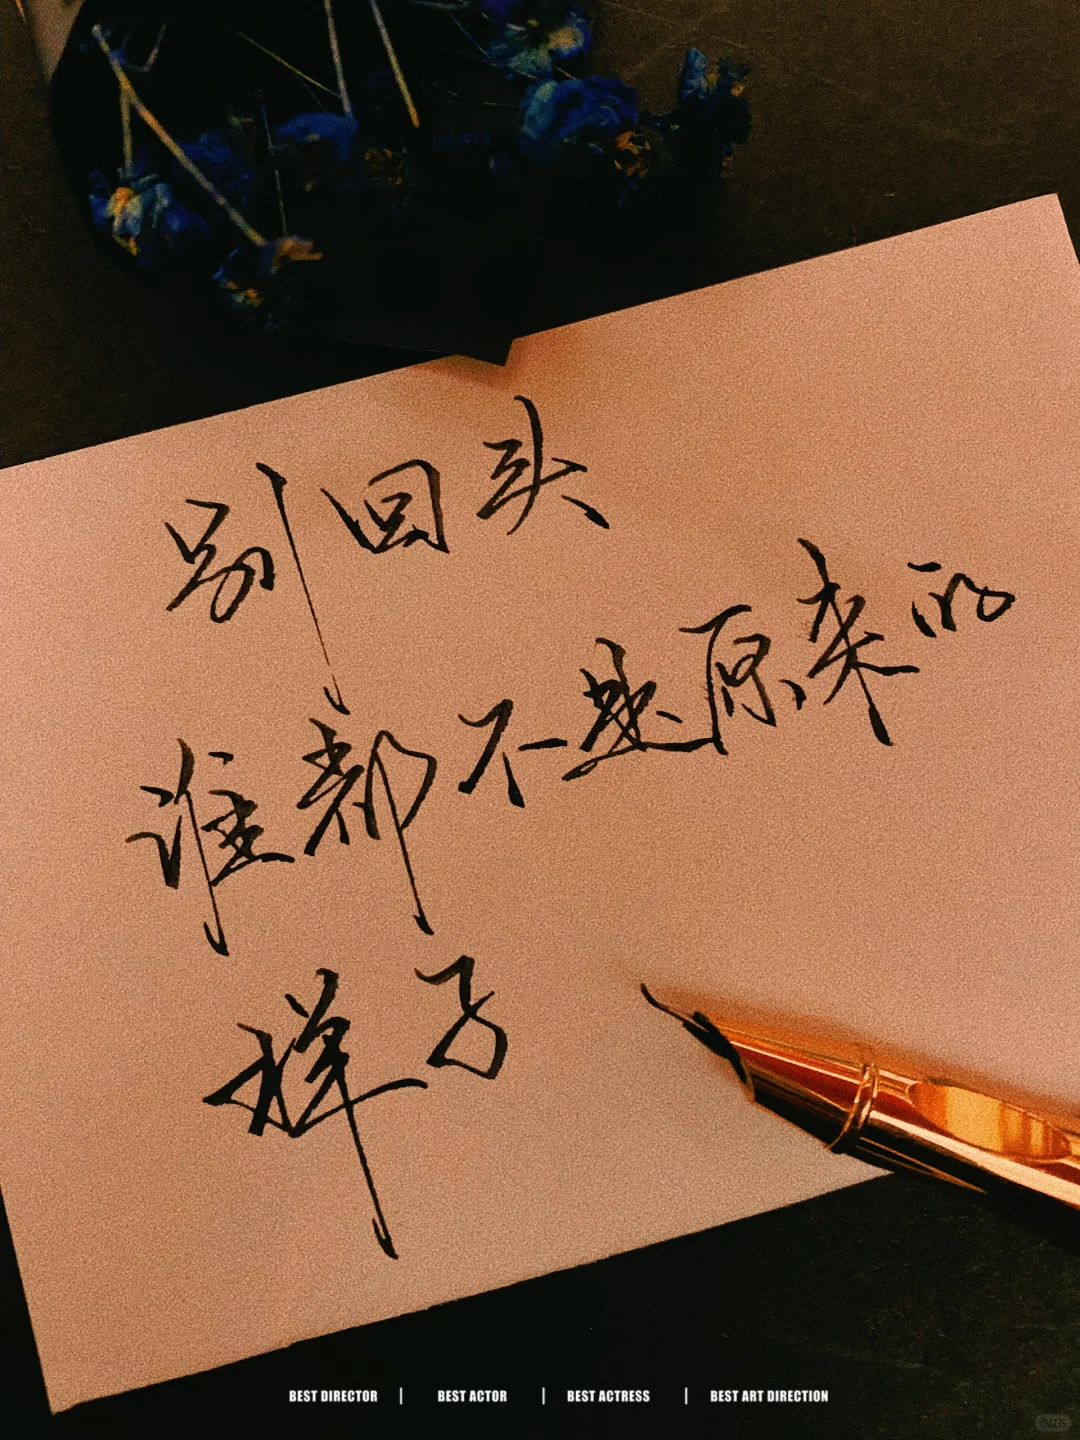 别回头
谁都不是原来的
样子
BEST DIRECTOR | BEST ACTOR | BEST ACTRESS | BEST ART DIRECTION